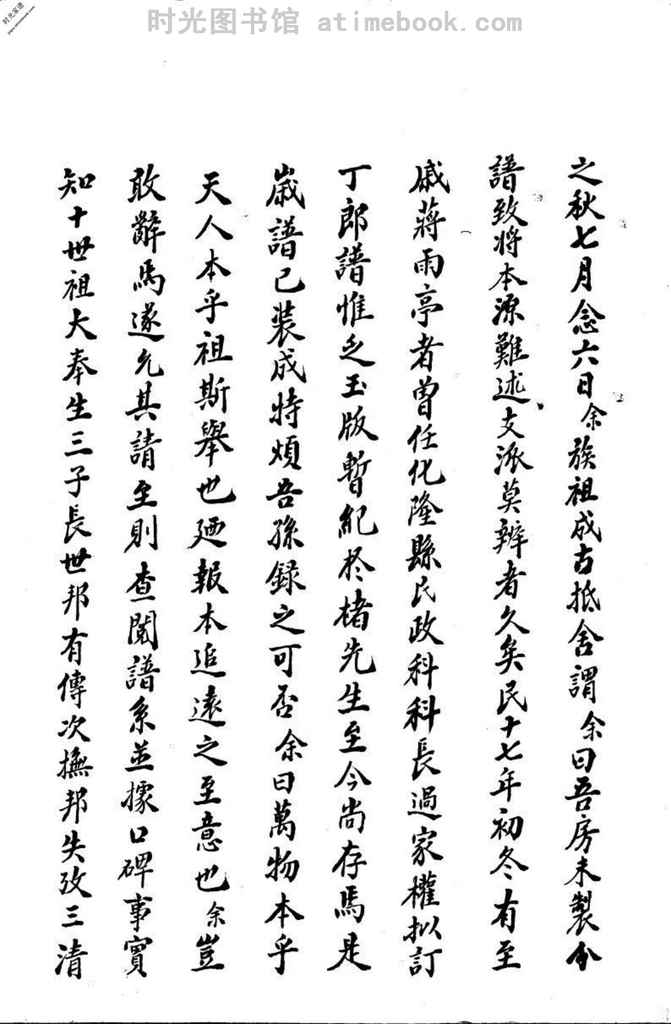 时光图书馆 atimebook.com
时光家谱
之秋七月念六日余族祖成古抵舍謂余曰吾房未製分
譜致將本源難述支派莫辨者久矣民十七年初冬有至
戚蔣雨亭者曾任化隆縣民政科科長過家權拟訂
丁郎譜惟乏玉版暫紀於楮先生至今尚存焉是
歲譜已裝成特煩吾孫錄之可否余曰萬物本乎
天人本乎祖斯舉也廼報本追遠之至意也余豈
敢辭焉遂允其請至則查閱譜系並據口碑事實
知十世祖大奉生三子長世邦有傳次撫邦失攷三清